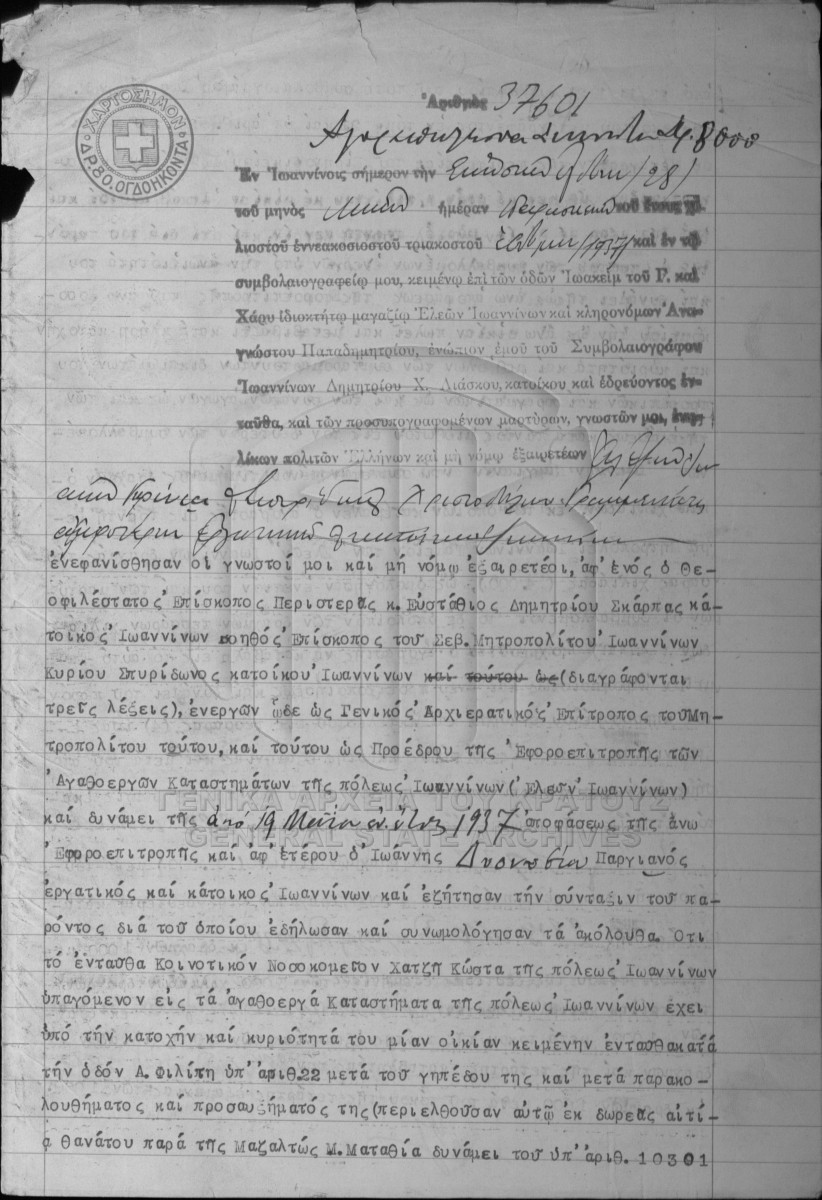 ΧΑΡΤΟΣΗΜΟΝ
ΔΡ. 80. ΟΓΔΟΗΚΟΝΤΑ
Ἀριθμὸς 37601
Δρ. 8000
Ἐν Ἰωαννίνοις σήμερον τὴν /28/
τοῦ μηνὸς ἡμέραν τοῦ ἔτους χι-
λιοστοῦ ἐννεακοσιοστοῦ τριακοστοῦ ἑβδόμου /1937/ καὶ ἐν τῷ
συμβολαιογραφείῳ μου, κειμένῳ ἐπὶ τῶν ὁδῶν Ἰωακεὶμ τοῦ Γ. καὶ
Χάρυ ἰδιοκτήτῳ μαγαζίῳ Ἐλεῶν Ἰωαννίνων καὶ κληρονόμων Ἀνα-
γνώστου Παπαδημητρίου, ἐνώπιον ἐμοῦ τοῦ Συμβολαιογράφου
Ἰωαννίνων Δημητρίου Χ. Διάσκου, κατοίκου καὶ ἑδρεύοντος ἐν-
ταῦθα, καὶ τῶν προσυπογραφομένων μαρτύρων, γνωστῶν μοι, ἐνη-
λίκων πολιτῶν Ἑλλήνων καὶ μὴ νόμῳ ἐξαιρετέων
ἐνεφανίσθησαν οἱ γνωστοί μοι καί μή νόμῳ ἐξαιρετέοι, ἀφ' ἑνός ὁ Θε-
οφιλέστατος Ἐπίσκοπος Περιστερᾶς κ. Εὐστάθιος Δημητρίου Σκάρπας κά-
τοικος Ἰωαννίνων βοηθός Ἐπίσκοπος τοῦ Σεβ. Μητροπολίτου Ἰωαννίνων
Κυρίου Σπυρίδωνος κατοίκου Ἰωαννίνων καί τούτου ὡς (διαγράφονται
τρεῖς λέξεις), ἐνεργῶν ᾧδε ὡς Γενικός Ἀρχιερατικός Ἐπίτροπος τοῦ Μη-
τροπολίτου τούτου, καί τούτου ὡς Προέδρου τῆς Ἐφοροεπιτροπῆς τῶν
Ἀγαθοεργῶν Καταστημάτων τῆς πόλεως Ἰωαννίνων (Ἐλεῶν Ἰωαννίνων)
καί δυνάμει τῆς ἀπό 19 Μαΐου ἐ. ἔτους 1937 ἀποφάσεως τῆς ἄνω
Ἐφοροεπιτροπῆς καί ἀφ' ἑτέρου ὁ Ἰωάννης Διονυσίου Παργιανός
ἐργατικός καί κάτοικος Ἰωαννίνων καί ἐζήτησαν τήν σύνταξιν τοῦ πα-
ρόντος διά τοῦ ὁποίου ἐδήλωσαν καί συνωμολόγησαν τά ἀκόλουθα. Οτι
τό ἐνταῦθα Κοινοτικόν Νοσοκομεῖον Χατζῆ Κώστα τῆς πόλεως Ἰωαννίνων
ὑπαγόμενον εἰς τά ἀγαθοεργά Καταστήματα τῆς πόλεως Ἰωαννίνων ἔχει
ὑπό τήν κατοχήν καί κυριότητά του μίαν οἰκίαν κειμένην ἐνταῦθα κατά
τήν ὁδόν Λ. Φιλίτη ὑπ' ἀριθ. 22 μετά τοῦ γηπέδου της καί μετά παρακο-
λουθήματος καί προσαυξήματός της (περιελθοῦσαν αὐτῷ ἐκ δωρεᾶς αἰτί-
ᾳ θανάτου παρά τῆς Μαζαλτώς Μ. Ματαθία δυνάμει τοῦ ὑπ' ἀριθ. 10301
ΓΕΝΙΚΑ ΑΡΧΕΙΑ ΤΟΥ ΚΡΑΤΟΥΣ
GENERAL STATE ARCHIVES